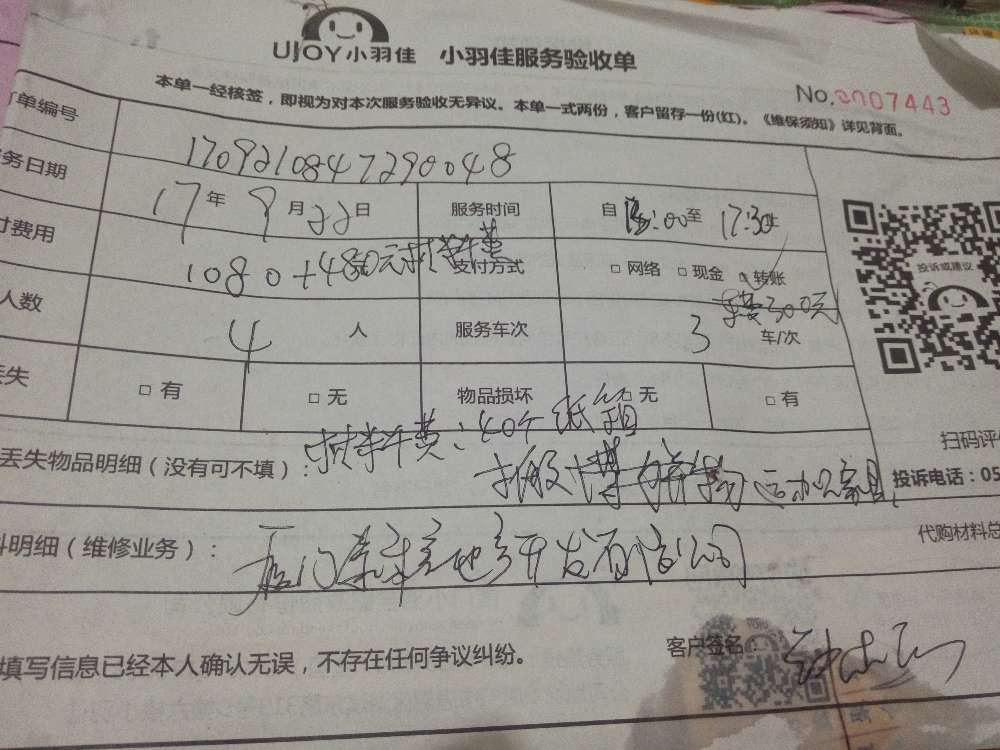 UJOY小羽佳 小羽佳服务验收单
No.0007443
本单一经核签，即视为对本次服务验收无异议。本单一式两份，客户留存一份(红)。《维保须知》详见背面。
单编号 1709210847290048
务日期 17年9月22日 服务时间 自 :00至 17:30
付费用 1080+480元材料费 支付方式 □网络 □现金 □转账
300元
人数 4 人 服务车次 3 车/次
丢失 □有 □无 物品损坏 □无 □有
投诉或建议
扫码评
投诉电话：05
丢失物品明细（没有可不填）： 材料费：40个纸箱
办公家具
代购材料总
料明细（维修业务）： 厦门 房地产开发有限公司
填写信息已经本人确认无误，不存在任何争议纠纷。
客户签名：